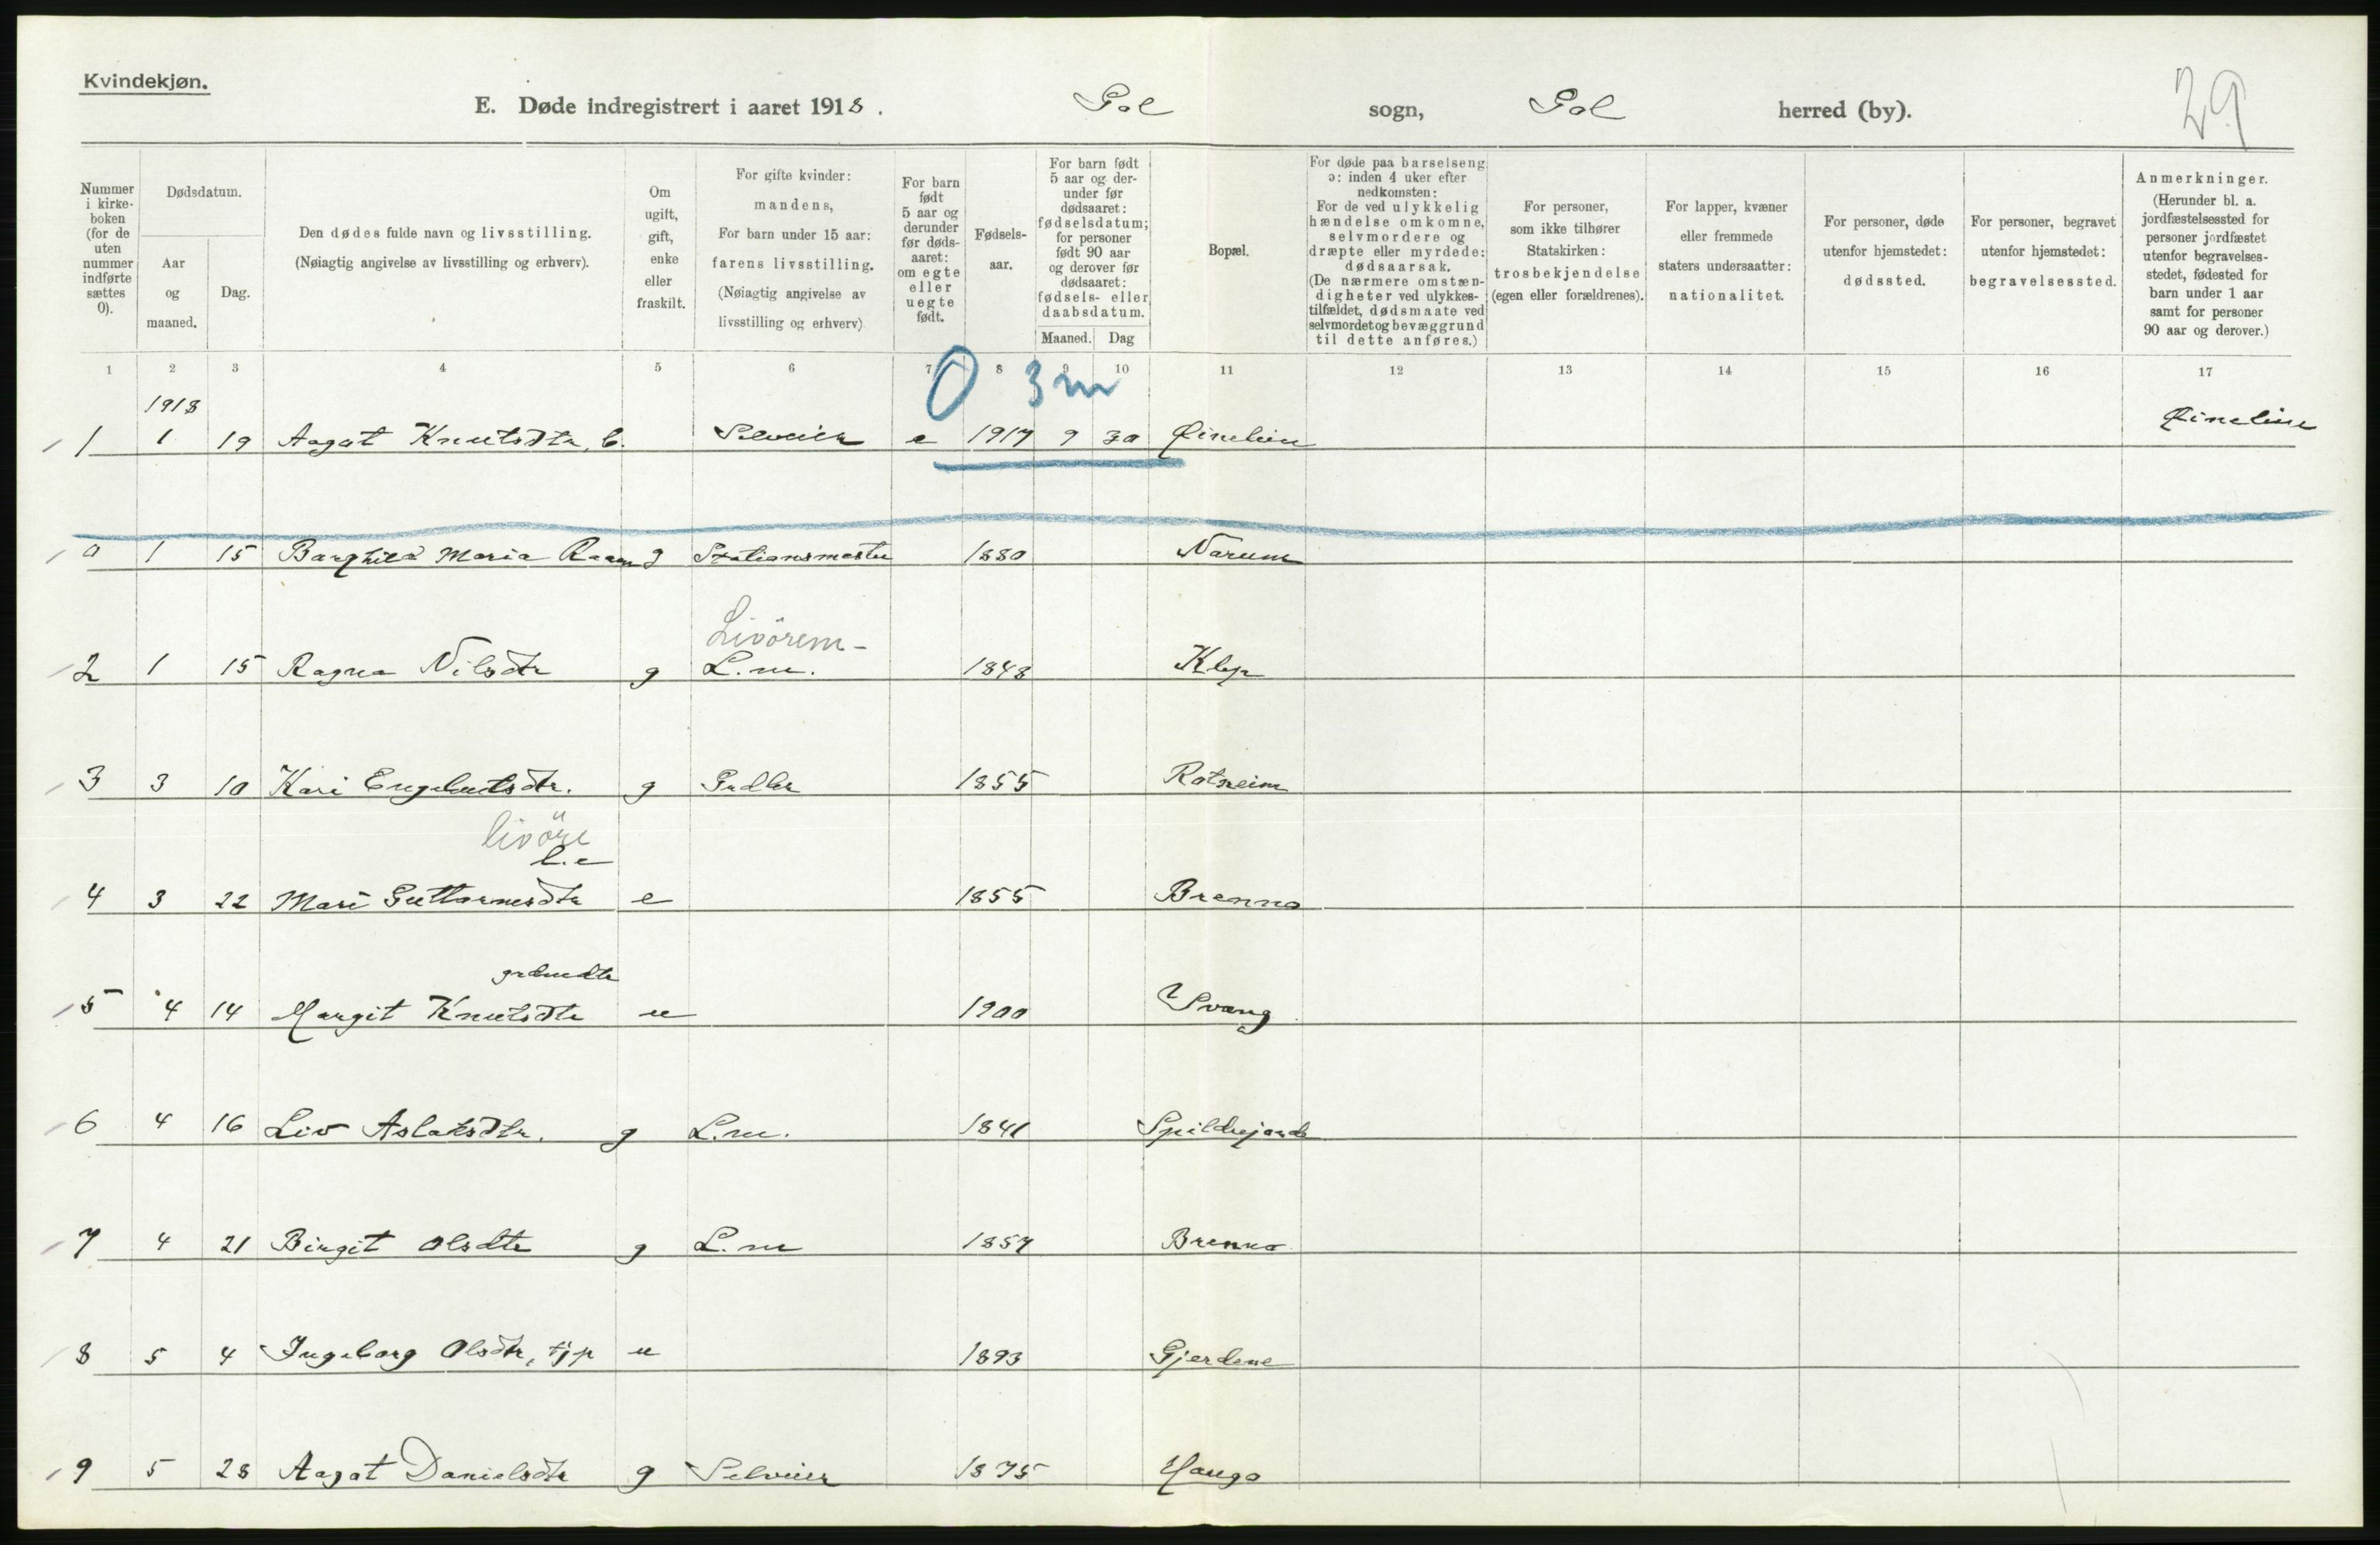 Kvindekjøn.
E. Døde indregistrert i aaret 1918. Gol sogn, Gol herred (by). 29
Nummer i kirkeboken (for de uten nummer indførte sættes 0).
Dødsdatum.
Aar og maaned.
Dag.
Den dødes fulde navn og livsstilling.
(Nøiagtig angivelse av livsstilling og erhverv).
Om ugift, gift, enke eller fraskilt.
For gifte kvinder: mandens,
For barn under 15 aar: farens livsstilling.
(Nøiagtig angivelse av livsstilling og erhverv)
For barn født 5 aar og derunder før dødsaaret: om egte eller uegte født.
Fødselsaar.
For barn født 5 aar og derunder før dødsaaret: fødselsdatum; for personer født 90 aar og derover før dødsaaret: fødsels- eller daabsdatum.
Maaned. Dag
Bopæl.
For døde paa barselseng ɔ: inden 4 uker efter nedkomsten:
For de ved ulykkelig hændelse omkomne, selvmordere og dræpte eller myrdede: dødsaarsak.
(De nærmere omstændigheter ved ulykkestilfældet, dødsmaate ved selvmordet og bevæggrund til dette anføres.)
For personer, som ikke tilhører Statskirken: trosbekjendelse (egen eller forældrenes).
For lapper, kvæner eller fremmede staters undersaatter: nationalitet.
For personer, døde utenfor hjemstedet: dødssted.
For personer, begravet utenfor hjemstedet: begravelsessted.
Anmerkninger.
(Herunder bl. a. jordfæstelsessted for personer jordfæstet utenfor begravelsesstedet, fødested for barn under 1 aar samt for personer 90 aar og derover.)
1 2 3 4 5 6 7 8 9 10 11 12 13 14 15 16 17
0 3 m
1918
1 1 19 Aagot Knutsdtr, b. Selveier e 1917 9 30 Øinelien Øineliene
0 1 15 Borghild Maria Raaen g Stationsmester 1880 Narum
Livörem-
2 1 15 Ragna Nilsdtr g L.m. 1848 Klep
3 3 10 Kari Engebretsdtr. g Grdbr 1855 Rotneim
livöre
l.e
4 3 22 Mari Guttormsdtr e 1855 Brenno
grdmdtr
5 4 14 Margit Knutsdtr u 1900 Svang
6 4 16 Liv Aslaksdtr. g L.m. 1841
7 4 21 Birgit Olsdtr g L.m 1857 Brenno
8 5 4 Ingeborg Olsdtr, tjp u 1893 Gjerdene
9 5 28 Aagot Danielsdtr g Selveier 1875 Haugo